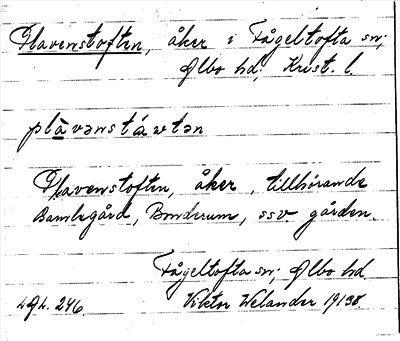 Plavenstoften, åker i Fågeltofta sn;
Albo hd; Krist. l.
plàvənstáwtən
Plavenstoften, åker, tillhörande
Bamlegård, Bonderum, ssv gården.
Fågeltofta sn; Albo hd.
Viktor Welander 1938